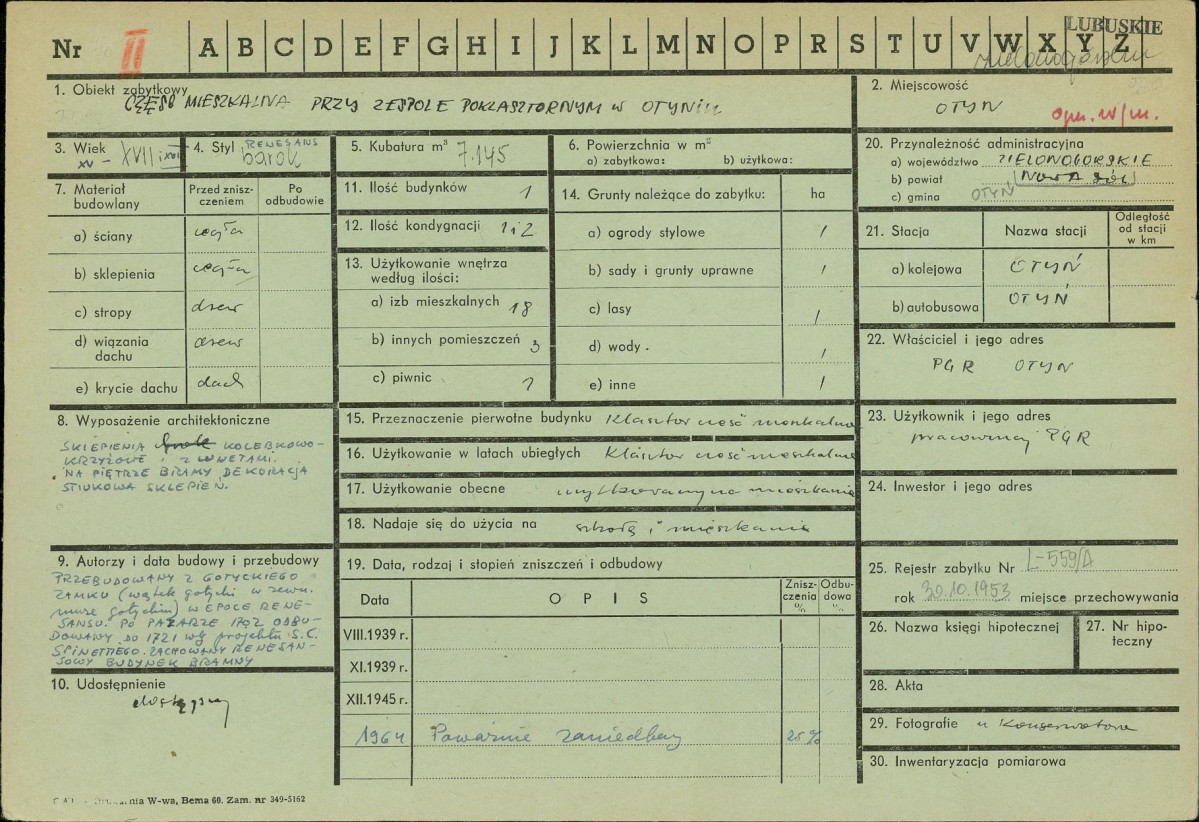 Nr II A B C D E F G H I J K L M N O P R S T U V W X Y Z
LUBUSKIE
1. Obiekt zabytkowy
CZĘŚĆ MIESZKALNA PRZY ZESPOLE POKLASZTORNYM W OTYNIU
2. Miejscowość
OTYŃ
3. Wiek
XV - XVII i XVI
4. Styl RENESANS
barok
5. Kubatura m³ 7.145
6. Powierzchnia w m²
a) zabytkowa: b) użytkowa:
20. Przynależność administracyjna
a) województwo ZIELONOGÓRSKIE
b) powiat NOWA SÓL
c) gmina OTYŃ
7. Materiał budowlany
Przed zniszczeniem
Po odbudowie
a) ściany cegła
b) sklepienia cegła
c) stropy drew
d) wiązania dachu drew
e) krycie dachu dach
11. Ilość budynków 1
12. Ilość kondygnacji 1 i 2
13. Użytkowanie wnętrza
według ilości:
a) izb mieszkalnych 18
b) innych pomieszczeń 3
c) piwnic 1
14. Grunty należące do zabytku: ha
a) ogrody stylowe /
b) sady i grunty uprawne /
c) lasy /
d) wody /
e) inne /
21. Stacja
Nazwa stacji
Odległość
od stacji
w km
a) kolejowa OTYŃ
b) autobusowa OTYŃ
22. Właściciel i jego adres
PGR OTYŃ
8. Wyposażenie architektoniczne
SKLEPIENIA KOLEBKOWO-
KRZYŻOWE I Z LUNETAMI.
NA PIĘTRZE BRAMY DEKORACJA
STIUKOWA SKLEPIEŃ.
15. Przeznaczenie pierwotne budynku Klasztor część mieszkalna
16. Użytkowanie w latach ubiegłych Klasztor część mieszkalna
17. Użytkowanie obecne użytkowany na mieszkania
18. Nadaje się do użycia na szkołę i mieszkania
23. Użytkownik i jego adres
pracownicy PGR
24. Inwestor i jego adres
9. Autorzy i data budowy i przebudowy
PRZEBUDOWANY Z GOTYCKIEGO
ZAMKU (wątek gotycki w zewn.
murze gotyckim) W EPOCE RENE-
SANSU. PO POŻARZE 1702 ODBU-
DOWANY DO 1721 wg projektu S.C.
SPINETTIEGO. ZACHOWANY RENESAN-
SOWY BUDYNEK BRAMNY
10. Udostępnienie
dostępny
19. Data, rodzaj i stopień zniszczeń i odbudowy
Data
O P I S
Zniszczenia %
Odbudowa %
VIII.1939 r.
XI.1939 r.
XII.1945 r.
1964 Poważnie zaniedbany 25%
25. Rejestr zabytku Nr L-559/A
rok 30.10.1953 miejsce przechowywania
26. Nazwa księgi hipotecznej
27. Nr hipo-
teczny
28. Akta
29. Fotografie u Konserwatora
30. Inwentaryzacja pomiarowa
W-wa, Bema 60. Zam. nr 349-5162